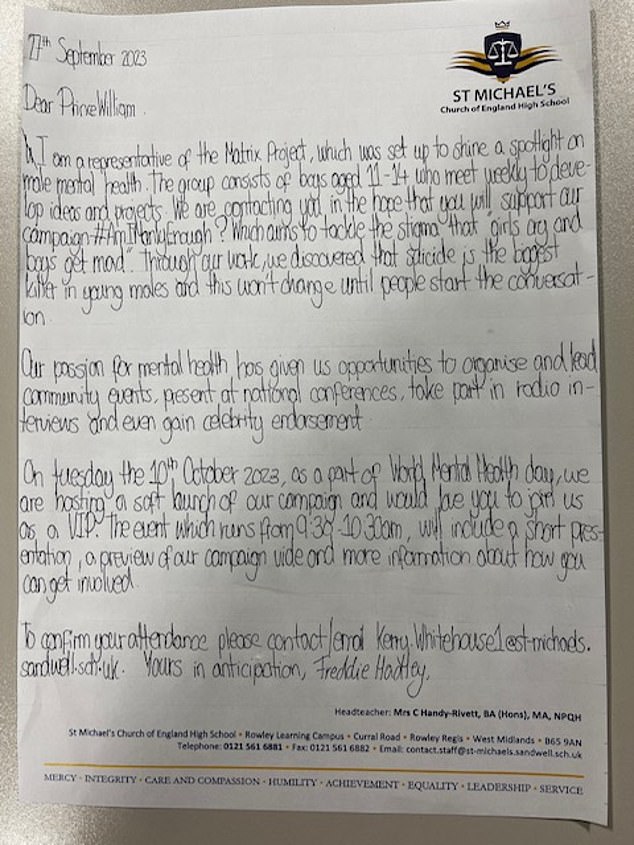 27th September 2023
ST MICHAEL'S
Church of England High School
Dear Prince William.
I am a representative of the Matrix Project, which was set up to shine a spotlight on
male mental health. The group consists of boys aged 11-14 who meet weekly to deve-
lop ideas and projects. We are contacting you in the hope that you will support our
campaign #AmIManlyEnough? Which aims to tackle the stigma that "girls cry and
boys get mad". Through our work, we discovered that suicide is the biggest
killer in young males and this won't change until people start the conversat-
ion.
Our passion for mental health has given us opportunities to organise and lead
community events, present at national conferences, take part in radio in-
terviews and even gain celebrity endorsement.
On tuesday the 10th October 2023, as a part of World Mental Health day, we
are hosting a soft launch of our campaign and would love you to join us
as a VIP. The event which runs from 9:30-10:30am, will include a short pres-
entation, a preview of our campaign vide and more information about how you
can get involved.
To confirm your attendance please contact/email Kerry.Whitehouse1@st-michaels.
sandwell.sch.uk. Yours in anticipation, Freddie Hadley.
Headteacher: Mrs C Handy-Rivett, BA (Hons), MA, NPQH
St Michael's Church of England High School • Rowley Learning Campus • Curral Road • Rowley Regis • West Midlands • B65 9AN
Telephone: 0121 561 6881 • Fax: 0121 561 6882 • Email: contact.staff@st-michaels.sandwell.sch.uk
MERCY · INTEGRITY · CARE AND COMPASSION · HUMILITY · ACHIEVEMENT · EQUALITY · LEADERSHIP · SERVICE